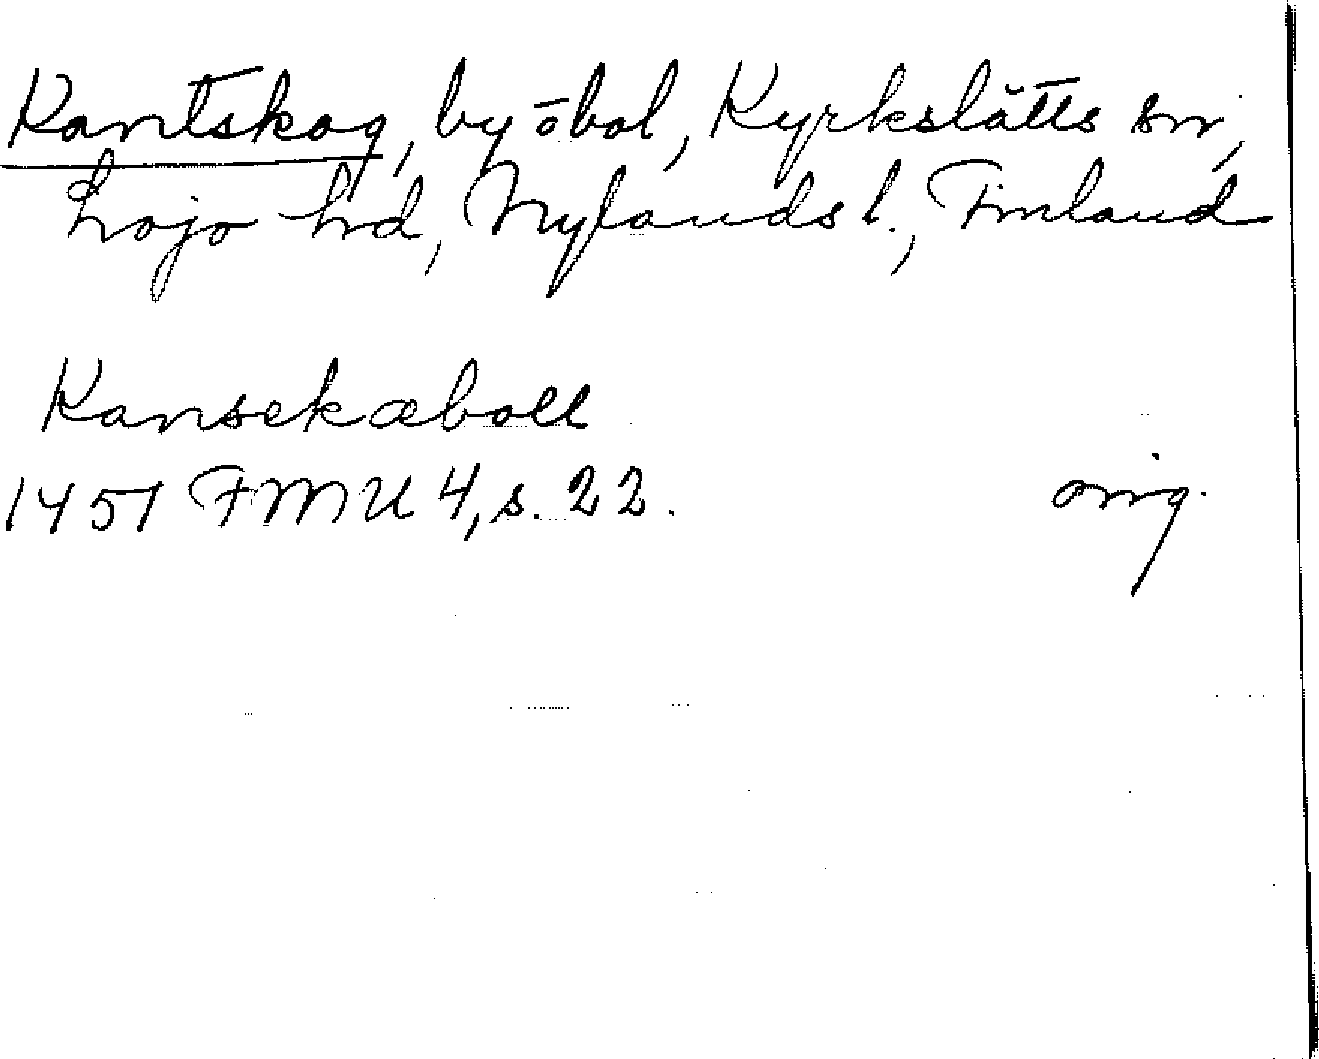 Kantskog, by o bol, Kyrkslätts sn,
Lojo hd, Nylands l., Finland
Kansekæboll
1451 FMU 4, s. 22.
orig.